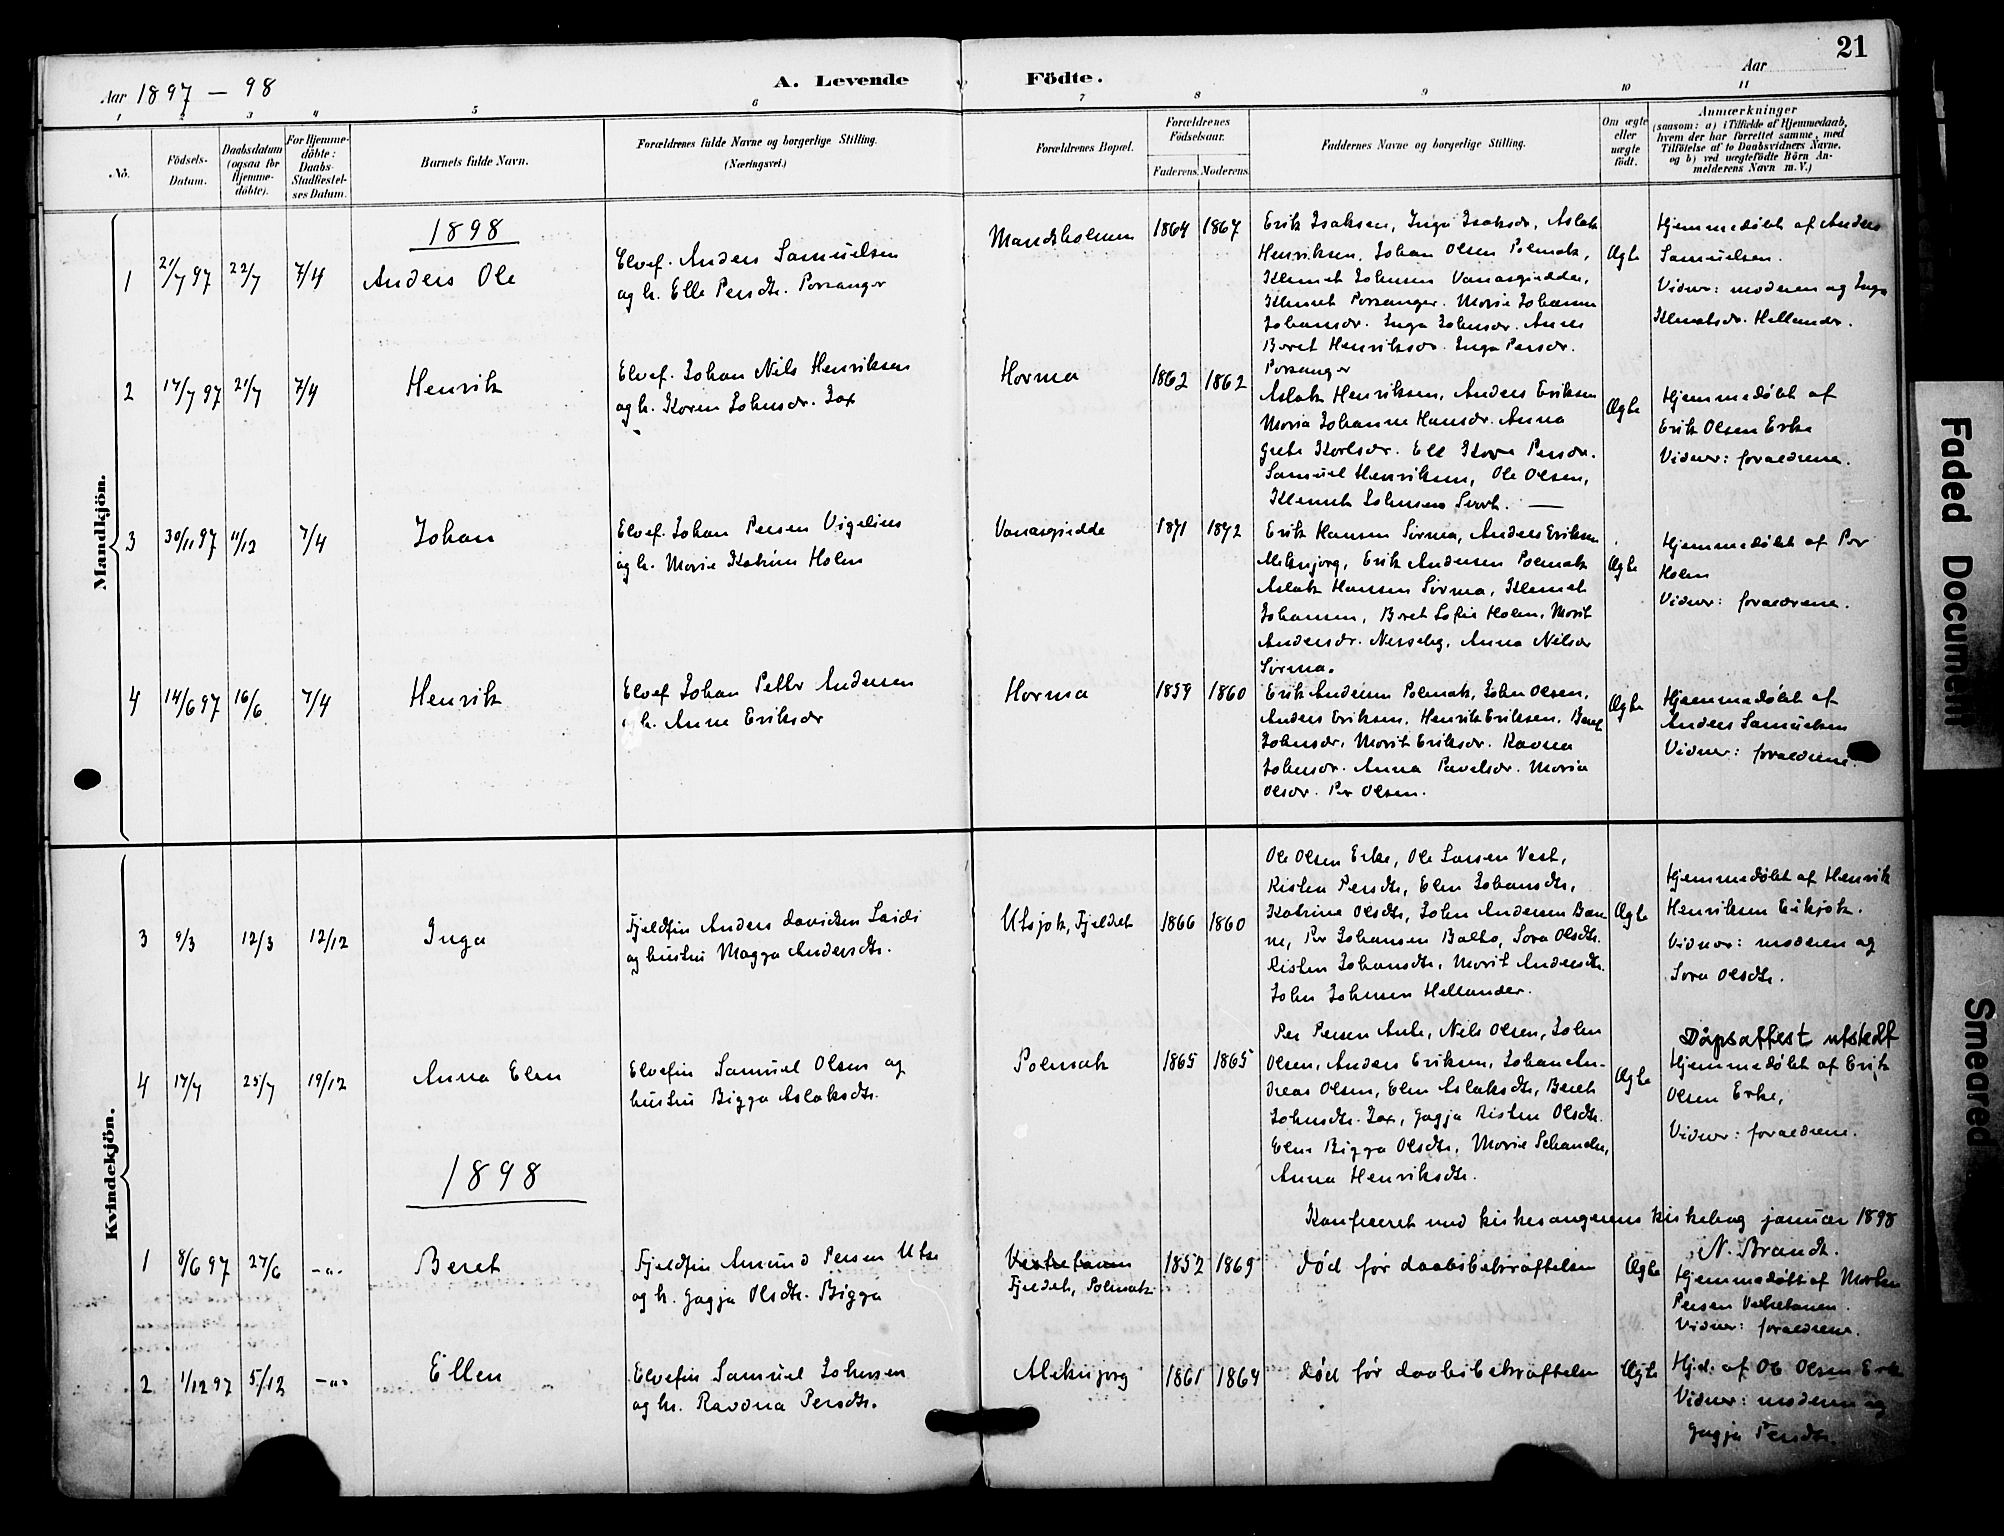 21
Aar 1897 - 98
A. Levende Födte.
Aar
1 2 3 4 5 6 7 8 9 10 11
No.
Födsels-Datum.
Daabsdatum (ogsaa for Hjemme-döbte).
For Hjemme-döbte: Daabs-Stadfæstel-ses Datum.
Barnets fulde Navn.
Forældrenes fulde Navne og borgerlige Stilling. (Næringsvei.)
Forældrenes Bopæl.
Forældrenes Födselsaar.
Faderens. Moderens.
Faddernes Navne og borgerlige Stilling.
Om ægte eller uægte födt.
Anmærkninger
(saasom: a) i Tilfælde af Hjemmedaab, hvem der har forrettet samme, med Tilföielse af to Daabsvidners Navne, og b) ved uægtefödte Börn Anmelderens Navn m. V.)
Mandkjön.
1898
1 21/7 97 22/7 7/4 Anders Ole
Elvef. Anders Samuelsen
og h. Elle Persdtr. Porsanger
Mandsholmen 1864 1867
Erik Isaksen, Inga Isaksdr, Aslak
Henriksen, Johan Olsen Polmak,
Klemet Johnsen Vanasgiedde,
Klemet Porsanger. Marie Johanne
Johansdr. Inga Johnsdr. Anne
Beret Henriksdr. Inga Persdr.
Porsanger
Ægte
Hjemmedøbt af Anders
Samuelsen.
Vidner: moderen og Inga
Klemetsdr. Hellander.
2 17/7 97 21/7 7/4 Henrik
Elvef. Johan Nils Henriksen
og h. Karen Johnsdr. Jox
Horma 1862 1862
Aslak Henriksen, Anders Eriksen
Maria Johanne Hansdr. Anna
Grete Karlsdr. Ell Kare Persdr.
Samuel Henriksen, Ole Olsen,
Klemet Johnsen
Ægte
Hjemmedøbt af
Erik Olsen Erke
Vidner: forældrene.
3 30/11 97 11/12 7/4 Johan
Elvef. Johan Persen Vigelius
og h. Marie Katrine Holm
Vanasgiedde 1871 1872
Erik Hansen Sirma, Anders Eriksen
Aleknjorg, Erik Andersen Polmak
Aslak Hansen Sirma, Klemet
Johansen, Beret Sofie Holm, Marit
Andersdr. Nesseby, Anna Nilsdr
Sirma.
Ægte
Hjemmedøbt af Per
Holm
Vidner: forældrene.
4 14/6 97 16/6 7/4 Henrik
Elvef Johan Petter Andersen
og h. Anne Eriksdr
Horma 1859 1860
Erik Andersen Polmak, John Olsen,
Anders Eriksen, Henrik Eriksen, Beret
Johnsdr, Marit Eriksdr. Ravna
Johnsdr. Anna Pavelsdr. Maria
Olsdr. Per Olsen.
Ægte
Hjemmedøbt af
Anders Samuelsen
Vidner: forældrene.
Kvindekjön.
3 9/3 12/3 12/12 Inga
Fjeldfin Anders Davidsen Laiti
og hustru Magga Andersdtr.
Utsjok, Fjeldet 1866 1860
Ole Olsen Erke, Ole Larsen Vest,
Risten Persdtr, Elen Johansdtr,
Katrine Olsdtr, John Andersen Ban
ne, Per Johansen Balto, Sara Olsdtr.
Risten Johansdtr, Marit Andersdtr.
John Johnsen Hellander.
Ægte
Hjemmedøbt af Henrik
Henriksen Eikjok.
Vidner: moderen og
Sara Olsdtr.
4 17/7 25/7 19/12 Anna Elen
Elvefin Samuel Olsen og
hustru Bigga Aslaksdtr.
Polmak 1865 1865
Per Persen Ante, Nils Olsen, John
Olsen, Anders Eriksen, Johan An-
dreas Olsen, Elen Aslaksdtr, Beret
Johnsdtr. Jox, Gagja Risten Olsdtr.
Elen Bigga Olsdtr, Marie Schander,
Anna Henriksdtr.
Ægte
Dåpsattest utstedt
Hjemmedøbt af Erik
Olsen Erke,
Vidner: forældrene.
Konfereret med kirkesangerens kirkebog januar 1898
N. Brandt.
1898
1 8/6 97 27/6 -"- Beret
Fjeldfin Amund Persen Utse
og h. Gagja Olsdtr. Bigga
Vestertanen
Fjeldet, Polmak
1852 1869
død før daabsbekræftelsen
Ægte
Hjemmedøbt af Morten
Persen Vestertanen.
Vidner: forældrene.
2 1/12 97 5/12 -"- Ellen
Elvefin Samuel Johnsen
og h. Ravdna Persdtr.
Aleknjorg 1861 1864
død før daabsbekræftelsen
Ægte
Hjd. af Ole Olsen Erke
Vidner: moderen og
Gagja Persdtr.
Faded Document
Smeared